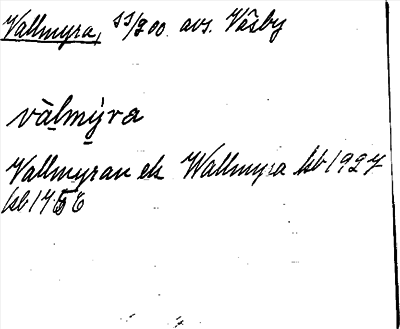 Vallmyra, SS/900. avs. Våsby
vàlmy̱ra
Vallmyran ek Wallmyra kb 1927
kb 1756